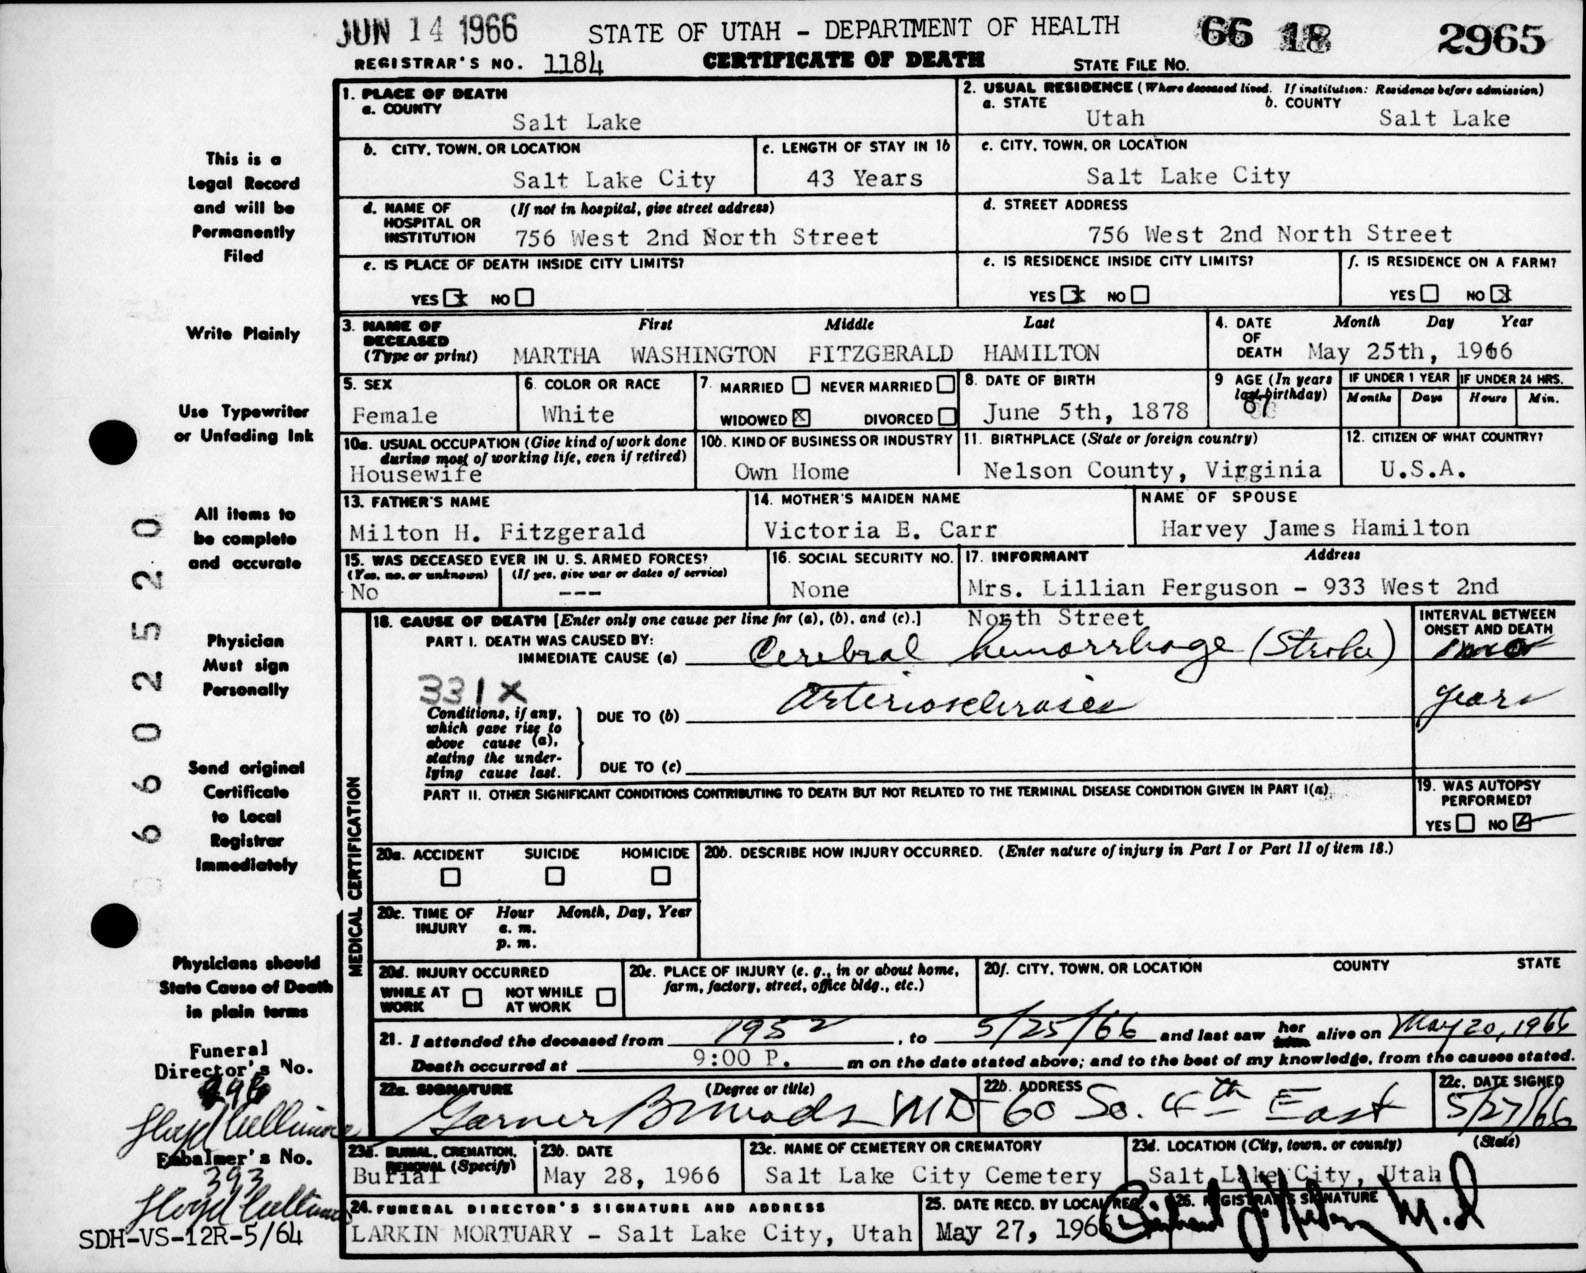 JUN 14 1966 STATE OF UTAH - DEPARTMENT OF HEALTH 66 18 2965
REGISTRAR'S NO. 1184 CERTIFICATE OF DEATH STATE FILE NO.
1. PLACE OF DEATH
a. COUNTY
Salt Lake
2. USUAL RESIDENCE (Where deceased lived. If institution: Residence before admission)
a. STATE b. COUNTY
Utah Salt Lake
b. CITY, TOWN, OR LOCATION
Salt Lake City
c. LENGTH OF STAY IN 1b
43 Years
c. CITY, TOWN, OR LOCATION
Salt Lake City
d. NAME OF (If not in hospital, give street address)
HOSPITAL OR
INSTITUTION 756 West 2nd North Street
d. STREET ADDRESS
756 West 2nd North Street
e. IS PLACE OF DEATH INSIDE CITY LIMITS?
YES x NO
e. IS RESIDENCE INSIDE CITY LIMITS?
YES x NO
f. IS RESIDENCE ON A FARM?
YES NO x
3. NAME OF First Middle Last
DECEASED
(Type or print) MARTHA WASHINGTON FITZGERALD HAMILTON
4. DATE Month Day Year
OF
DEATH May 25th, 1966
5. SEX
Female
6. COLOR OR RACE
White
7. MARRIED NEVER MARRIED
WIDOWED x DIVORCED
8. DATE OF BIRTH
June 5th, 1878
9 AGE (In years
last birthday)
87
IF UNDER 1 YEAR IF UNDER 24 HRS.
Months Days Hours Min.
10a. USUAL OCCUPATION (Give kind of work done
during most of working life, even if retired)
Housewife
10b. KIND OF BUSINESS OR INDUSTRY
Own Home
11. BIRTHPLACE (State or foreign country)
Nelson County, Virginia
12. CITIZEN OF WHAT COUNTRY?
U.S.A.
13. FATHER'S NAME
Milton H. Fitzgerald
14. MOTHER'S MAIDEN NAME
Victoria E. Carr
NAME OF SPOUSE
Harvey James Hamilton
15. WAS DECEASED EVER IN U. S. ARMED FORCES?
(Yes, no, or unknown) (If yes, give war or dates of service)
No ---
16. SOCIAL SECURITY NO.
None
17. INFORMANT Address
Mrs. Lillian Ferguson - 933 West 2nd
North Street
MEDICAL CERTIFICATION
18. CAUSE OF DEATH [Enter only one cause per line for (a), (b), and (c).]
INTERVAL BETWEEN
ONSET AND DEATH
PART I. DEATH WAS CAUSED BY:
IMMEDIATE CAUSE (a) Cerebral hemorrhage (Stroke)
331X
Conditions, if any,
which gave rise to
above cause (a),
stating the under-
lying cause last.
DUE TO (b) Arteriosclerosis years
DUE TO (c)
PART II. OTHER SIGNIFICANT CONDITIONS CONTRIBUTING TO DEATH BUT NOT RELATED TO THE TERMINAL DISEASE CONDITION GIVEN IN PART I(a)
19. WAS AUTOPSY
PERFORMED?
YES NO
20a. ACCIDENT SUICIDE HOMICIDE
20b. DESCRIBE HOW INJURY OCCURRED. (Enter nature of injury in Part I or Part II of item 18.)
20c. TIME OF Hour Month, Day, Year
INJURY a. m.
p. m.
20d. INJURY OCCURRED
WHILE AT NOT WHILE
WORK AT WORK
20e. PLACE OF INJURY (e. g., in or about home,
farm, factory, street, office bldg., etc.)
20f. CITY, TOWN, OR LOCATION COUNTY STATE
21. I attended the deceased from 1952, to 5/25/66 and last saw her alive on May 20, 1966
Death occurred at 9:00 P. m on the date stated above; and to the best of my knowledge, from the causes stated.
22a. SIGNATURE (Degree or title)
MD
22b. ADDRESS
60 So. 4th East
22c. DATE SIGNED
5/27/66
23a. BURIAL, CREMATION,
REMOVAL (Specify)
Burial
23b. DATE
May 28, 1966
23c. NAME OF CEMETERY OR CREMATORY
Salt Lake City Cemetery
23d. LOCATION (City, town, or county) (State)
Salt Lake City, Utah
24. FUNERAL DIRECTOR'S SIGNATURE AND ADDRESS
LARKIN MORTUARY - Salt Lake City, Utah
25. DATE RECD. BY LOCAL REG.
May 27, 1966
26. REGISTRAR'S SIGNATURE
M.D
This is a
Legal Record
and will be
Permanently
Filed
Write Plainly
Use Typewriter
or Unfading Ink
All items to
be complete
and accurate
Physician
Must sign
Personally
Send original
Certificate
to Local
Registrar
Immediately
Physicians should
State Cause of Death
in plain terms
Funeral
Director's No.
396
Embalmer's No.
393
SDH-VS-12R-5/64
660252520